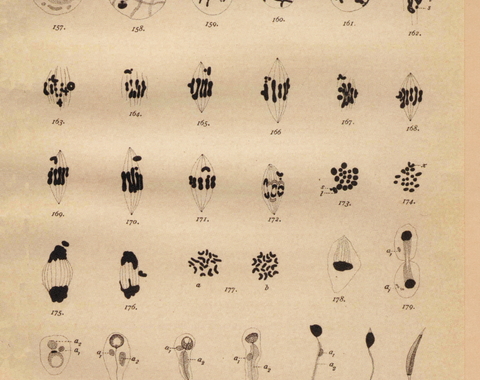 157.
158.
159.
160.
161.
162.
163.
164.
165.
166
167.
168.
169.
170.
171.
172.
173.
174.
x
s
l
175.
176.
a
177.
b
178.
179.
a₁
a₁
a₂
a₁
a₁
a₂
a₁
a₂
a₁
a₂
a₁
a₂